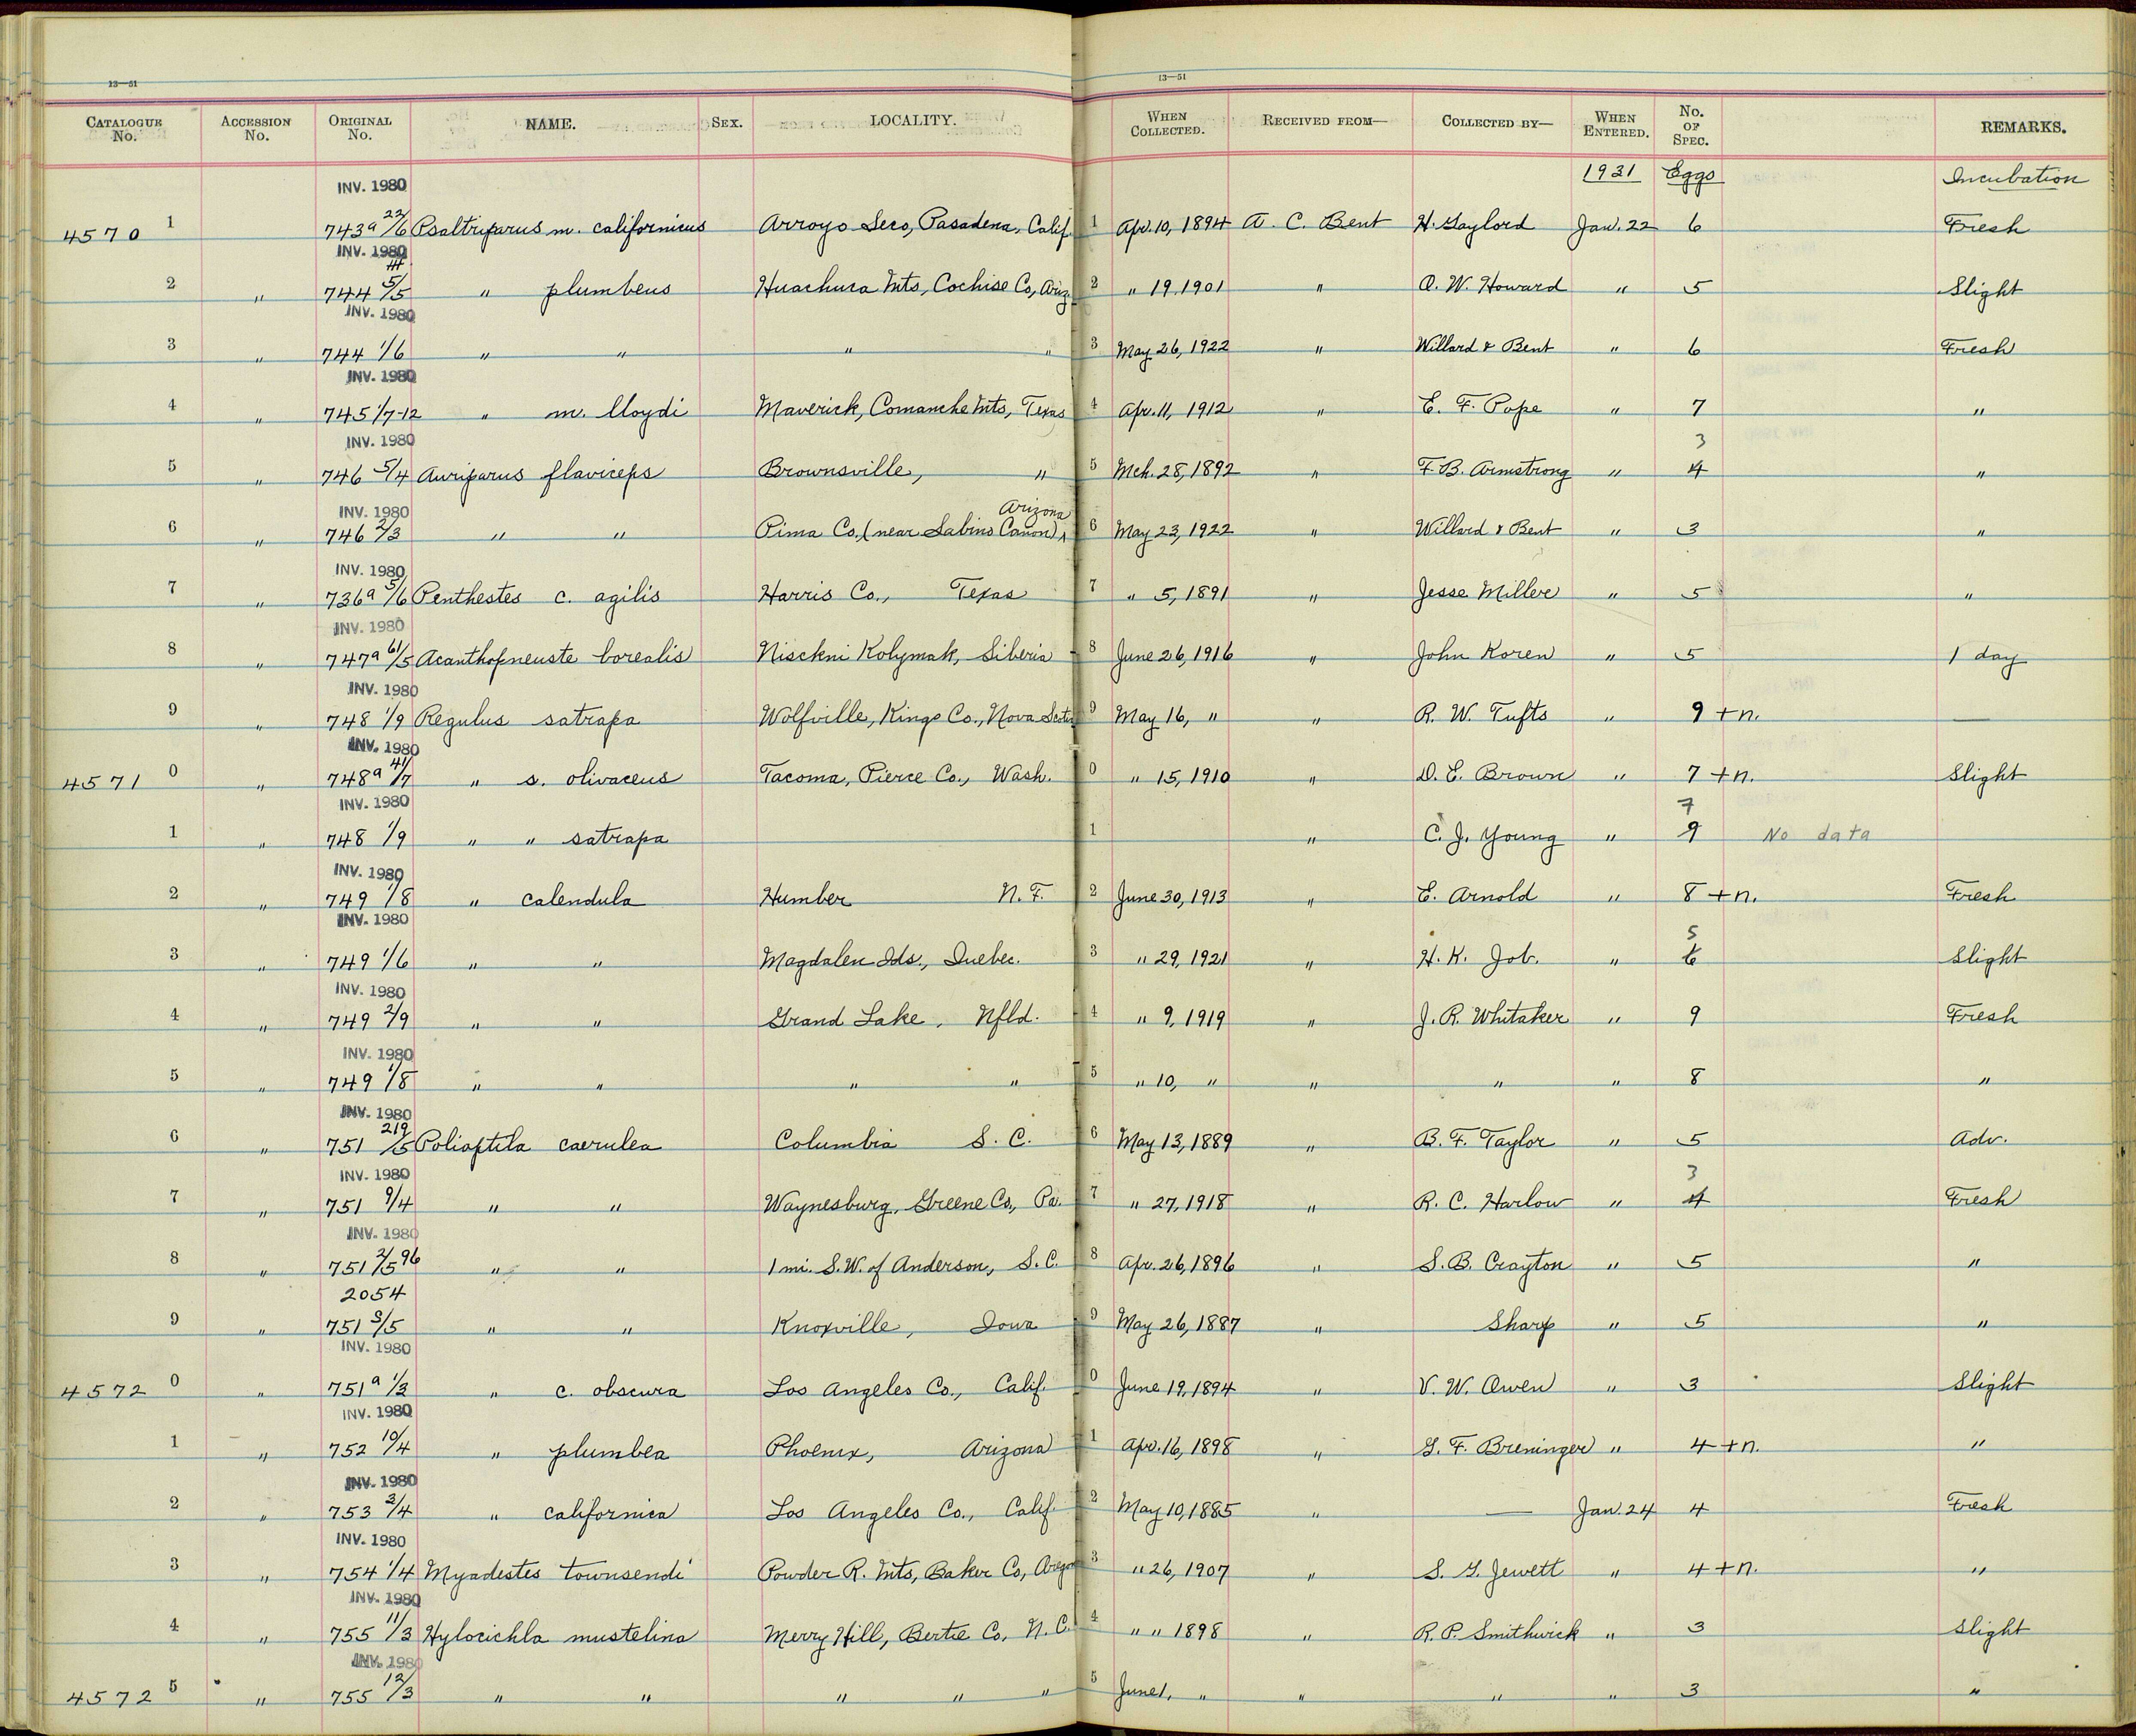 13—51 13—51
CATALOGUE No. ACCESSION No. ORIGINAL No. NAME. SEX. LOCALITY. WHEN COLLECTED. RECEIVED FROM— COLLECTED BY— WHEN ENTERED. No. OF SPEC. REMARKS.
INV. 1980 1931 Eggs Incubation
4570 1 743a 22/6 Psaltriparus m. californicus Arroyo Seco, Pasadena, Calif. 1 Apr. 10, 1894 A. C. Bent H. Gaylord Jan. 22 6 Fresh
INV. 1980
2 " 744 41 5/5 " plumbeus Huachuca Mts, Cochise Co, Ariz. 2 " 19, 1901 " O. W. Howard " 5 Slight
INV. 1980
3 " 744 1/6 " " " " 3 May 26, 1922 " Willard & Bent " 6 Fresh
INV. 1980
4 " 745 1/7-12 " m. lloydi Maverick, Comanche Mts, Texas 4 Apr. 11, 1912 " E. F. Pope " 7 "
INV. 1980 3
5 " 746 5/4 Auriparus flaviceps Brownsville, " 5 Mch. 28, 1892 " F. B. Armstrong " 4 "
INV. 1980 Arizona
6 " 746 2/3 " " Pima Co. (near Sabino Canon), 6 May 23, 1922 " Willard & Bent " 3 "
INV. 1980
7 " 736a 5/6 Penthestes c. agilis Harris Co., Texas 7 " 5, 1891 " Jesse Miller " 5 "
INV. 1980
8 " 747a 61/5 Acanthopneuste borealis Nisckni Kolymak, Siberia 8 June 26, 1916 " John Koren " 5 1 day
INV. 1980
9 " 748 1/9 Regulus satrapa Wolfville, Kings Co., Nova Scotia 9 May 16, " " R. W. Tufts " 9 + n. —
INV. 1980
4571 0 " 748a 41/7 " s. olivaceus Tacoma, Pierce Co., Wash. 0 " 15, 1910 " D. E. Brown " 7 + n. Slight
INV. 1980 7
1 " 748 1/9 " " satrapa 1 " C. J. Young " 9 No data
INV. 1980
2 " 749 1/8 " calendula Humber N. F. 2 June 30, 1913 " E. Arnold " 8 + n. Fresh
INV. 1980 5
3 " 749 1/6 " " Magdalen Ids., Quebec. 3 " 29, 1921 " H. K. Job. " 6 Slight
INV. 1980
4 " 749 2/9 " " Grand Lake, Nfld. 4 " 9, 1919 " J. R. Whitaker " 9 Fresh
INV. 1980
5 " 749 1/8 " " " " 5 " 10, " " " " 8 "
INV. 1980
6 " 751 219/5 Polioptila caerulea Columbia S. C. 6 May 13, 1889 " B. F. Taylor " 5 Adv.
INV. 1980 3
7 " 751 9/4 " " Waynesburg, Greene Co., Pa. 7 " 27, 1918 " R. C. Harlow " 4 Fresh
INV. 1980
8 " 751 2/5 96 " " 1 mi. S.W. of Anderson, S. C. 8 Apr. 26, 1896 " S. B. Crayton " 5 "
2054
9 " 751 5/5 " " Knoxville, Iowa 9 May 26, 1887 " Sharp " 5 "
INV. 1980
4572 0 " 751a 1/3 " c. obscura Los Angeles Co., Calif. 0 June 19, 1894 " V. W. Owen " 3 Slight
INV. 1980
1 " 752 10/4 " plumbea Phoenix, Arizona 1 Apr. 16, 1898 " G. F. Breninger " 4 + n. "
INV. 1980
2 " 753 2/4 " californica Los Angeles Co., Calif. 2 May 10, 1885 " — Jan. 24 4 Fresh
INV. 1980
3 " 754 1/4 Myadestes townsendi Powder R. Mts, Baker Co, Oregon 3 " 26, 1907 " S. G. Jewett " 4 + n. "
INV. 1980
4 " 755 11/3 Hylocichla mustelina Merry Hill, Bertie Co, N. C. 4 " " 1898 " R. P. Smithwick " 3 Slight
INV. 1980
4572 5 " 755 12/3 " " " " " 5 June 1, " " " " 3 "